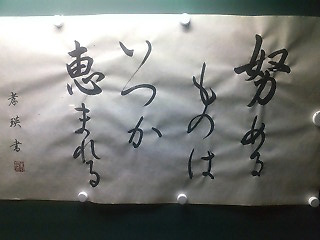 努める
ものは
いつか
恵まれる
孝瑛書